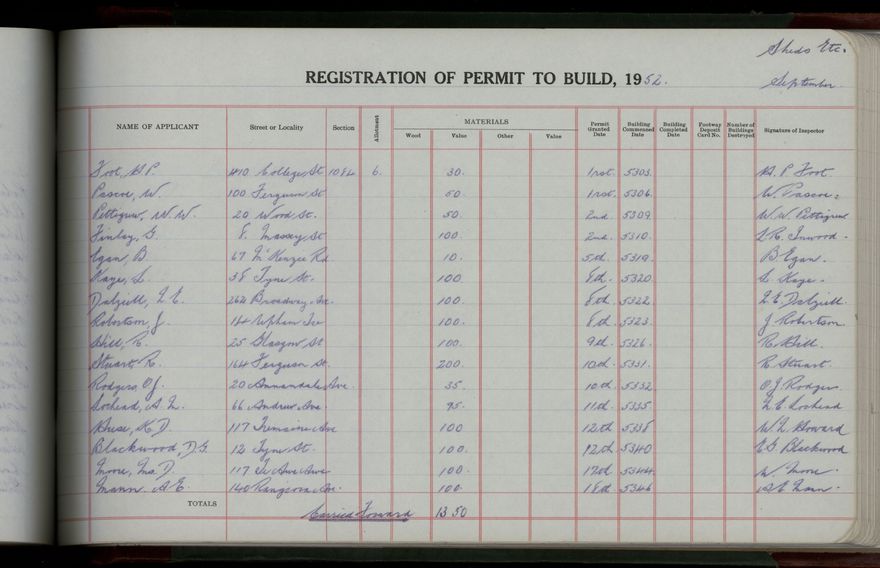 Sheds Etc.
REGISTRATION OF PERMIT TO BUILD, 1952. September
MATERIALS
NAME OF APPLICANT Street or Locality Section Allotment Wood Value Other Value Permit Granted Date Building Commenced Date Building Completed Date Footway Deposit Card No. Number of Buildings Destroyed Signature of Inspector
Foot, 410 College St 1084 6. 30. 1rst. 5303. P. Foot.
Pascoe, W. 100 Ferguson St 50. 1rst. 5306. W. Pascoe.
Pettigrew, W. W. 20 Wood St. 50. 2nd. 5309. W. W. Pettigrew
Finlay, G. 8. Massey St 100. 2nd. 5310. Inwood.
Egan, B 67 McKenzie Rd 10. 5th. 5319. B Egan.
Kaye, S. 38 Tyne St. 100 8th. 5320. S. Kaye.
Dalziell, 264 Broadway Ave. 100. 8th 5322. Dalziell.
Robertson, J. 164 Upham Tce 100. 8th. 5323. J Robertson
Hill, R. 25 Glasgow St 100. 9th. 5326. R. Hill.
Stuart, R. 164 Ferguson St. 200. 10th. 5331. R. Stuart.
Rodgers, O J. 20 Annandale Ave. 35. 10th 5332. O J Rodgers
Lochead, 66 Andrew Ave. 95. 11th. 5335. Lochead
K. D. 117 Tremaine Ave 100 12th 5338 Howard
Blackwood, D. G. 12 Tyne St. 100. 12th 5340 Blackwood
Moore, D. 117 Te Awe Awe 100. 17th 5344. W. Moore.
Mann. A. E. 140 Rangiora Ave. 100. 18th 5346 A E Mann.
TOTALS Carried Forward 1350